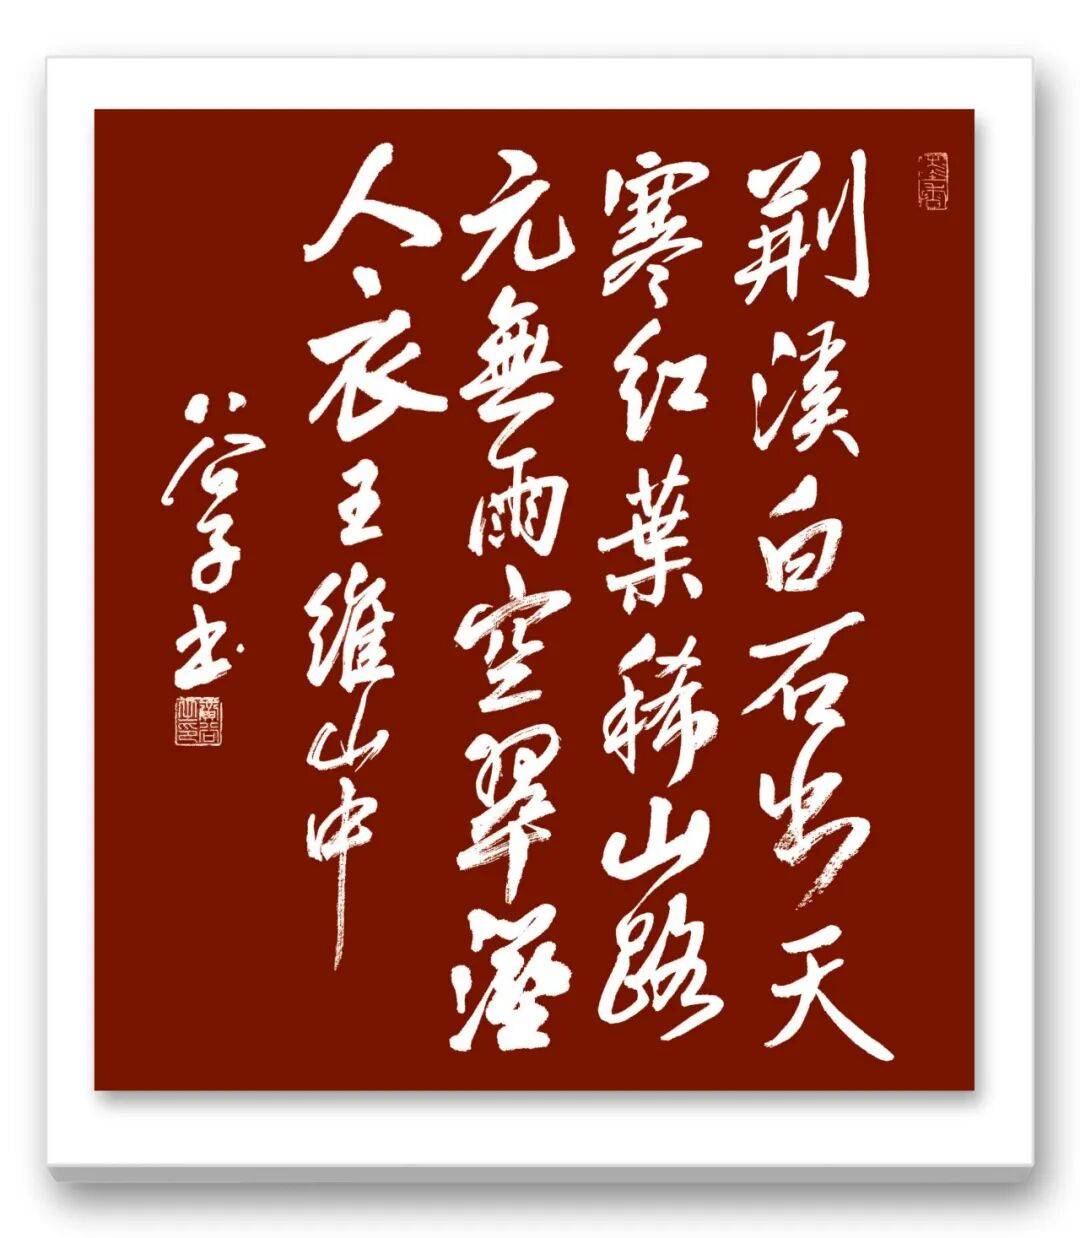 荆溪白石出天
寒红葉稀山路
元無雨空翠溼
人衣王維山中
谷子书